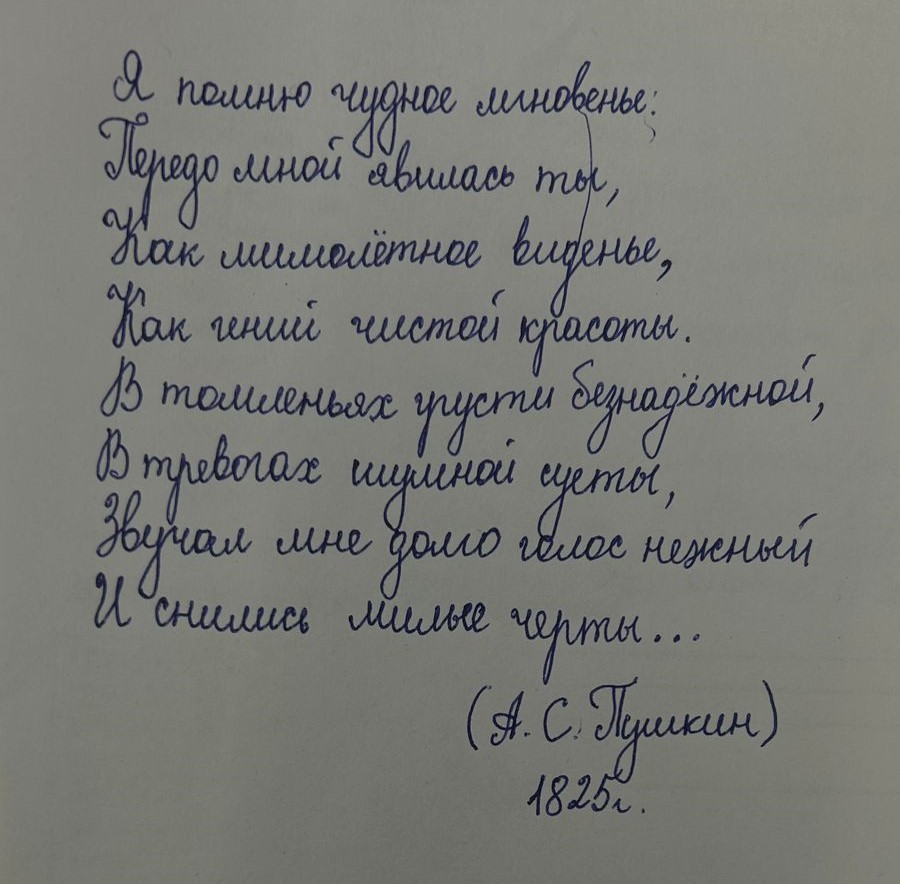 Я помню чудное мгновенье:
Передо мной явилась ты,
Как мимолётное виденье,
Как гений чистой красоты.
В томленьях грусти безнадёжной,
В тревогах шумной суеты,
Звучал мне долго голос нежный
И снились милые черты...
(А. С. Пушкин)
1825г.